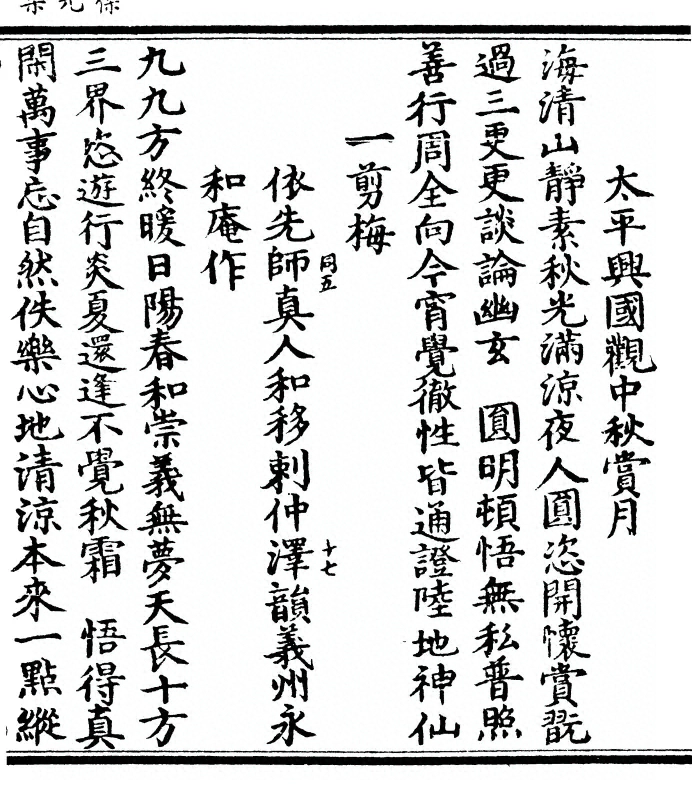 太平興國觀中秋賞月
海清山靜素秋光滿涼夜人圓恣開懷賞翫
過三更更談論幽玄　圓明頓悟無私普照
善行周全向今宵覺徹性皆通證陸地神仙
一剪梅
依先師真人和移剌仲澤韻義州永
同五
十七
和庵作
九九方終暖日陽春和崇義無夢天長十方
三界恣遊行炎夏還逢不覺秋霜　悟得真
閑萬事忘自然佚樂心地清涼本來一點縱